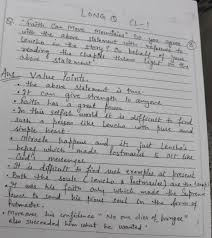 LONG Q CL-1
Q. "Faith Can Move Mountains" Do you agree
with the above statement with reference to
Lencho in the story? On behalf of your
reading the chapter throw light on the
above statement
Ans. Value Points:
• The above statement is true
• It can give strength to anyone
• Faith has a great power
• In this selfish world it is difficult to find
such a person like Lencho with pure and
simple heart.
• Miracle happens and it is just Lencho's
which made Postmaster to act like
God's messenger
• It is difficult to find such examples at present
• Both the souls (Lencho & Postmaster) are the
• It was his faith only which made the supreme
to send his pious soul in the form of
Postmaster.
• Moreover his confidence "No one dies of hunger"
also succeeded him what he wanted.